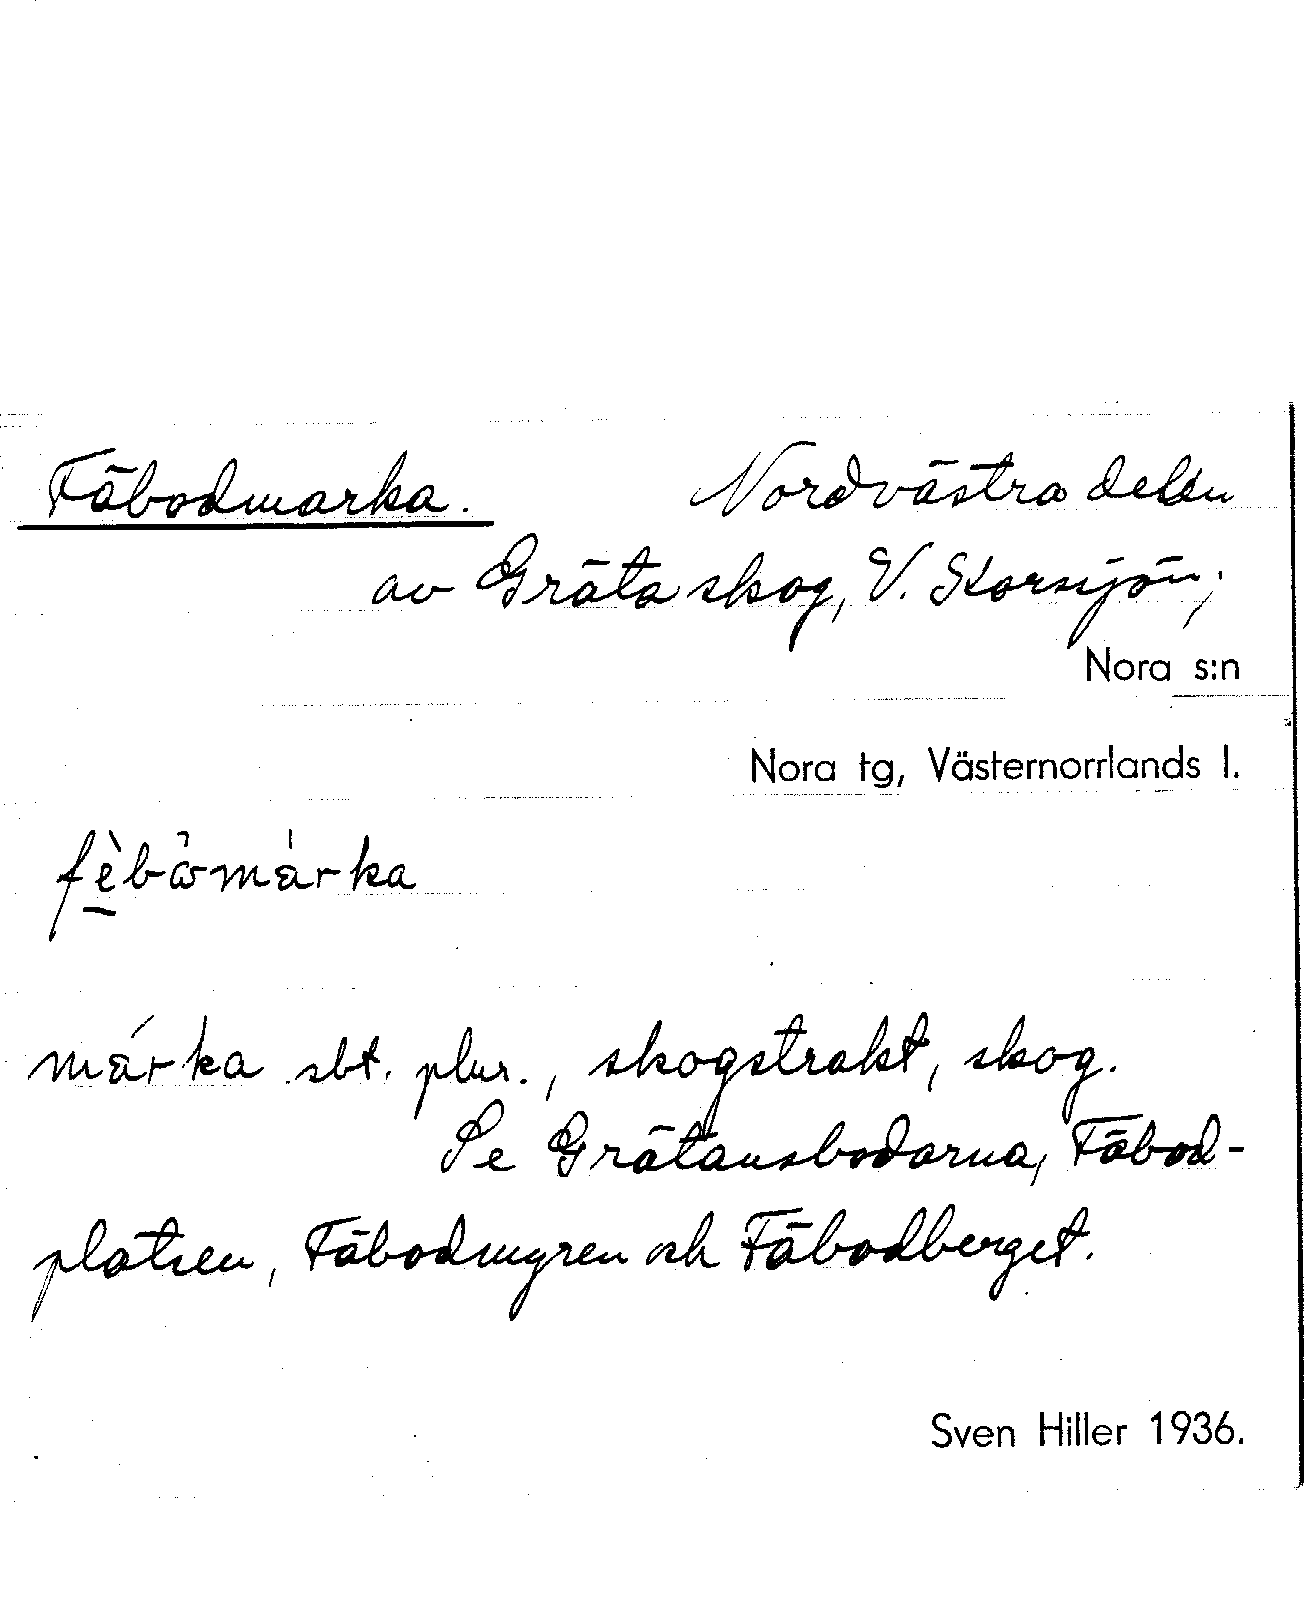 Fäbodmarka. Nordvästra delen
av Gräta skog, V. Storsjön,
Nora s:n
Nora tg, Västernorrlands l.
fèbωmárka
márka sbt. plur., skogstrakt, skog.
Se Grätansbodarna, Fäbod-
platsen, Fäbodmyren och Fäbodberget.
Sven Hiller 1936.